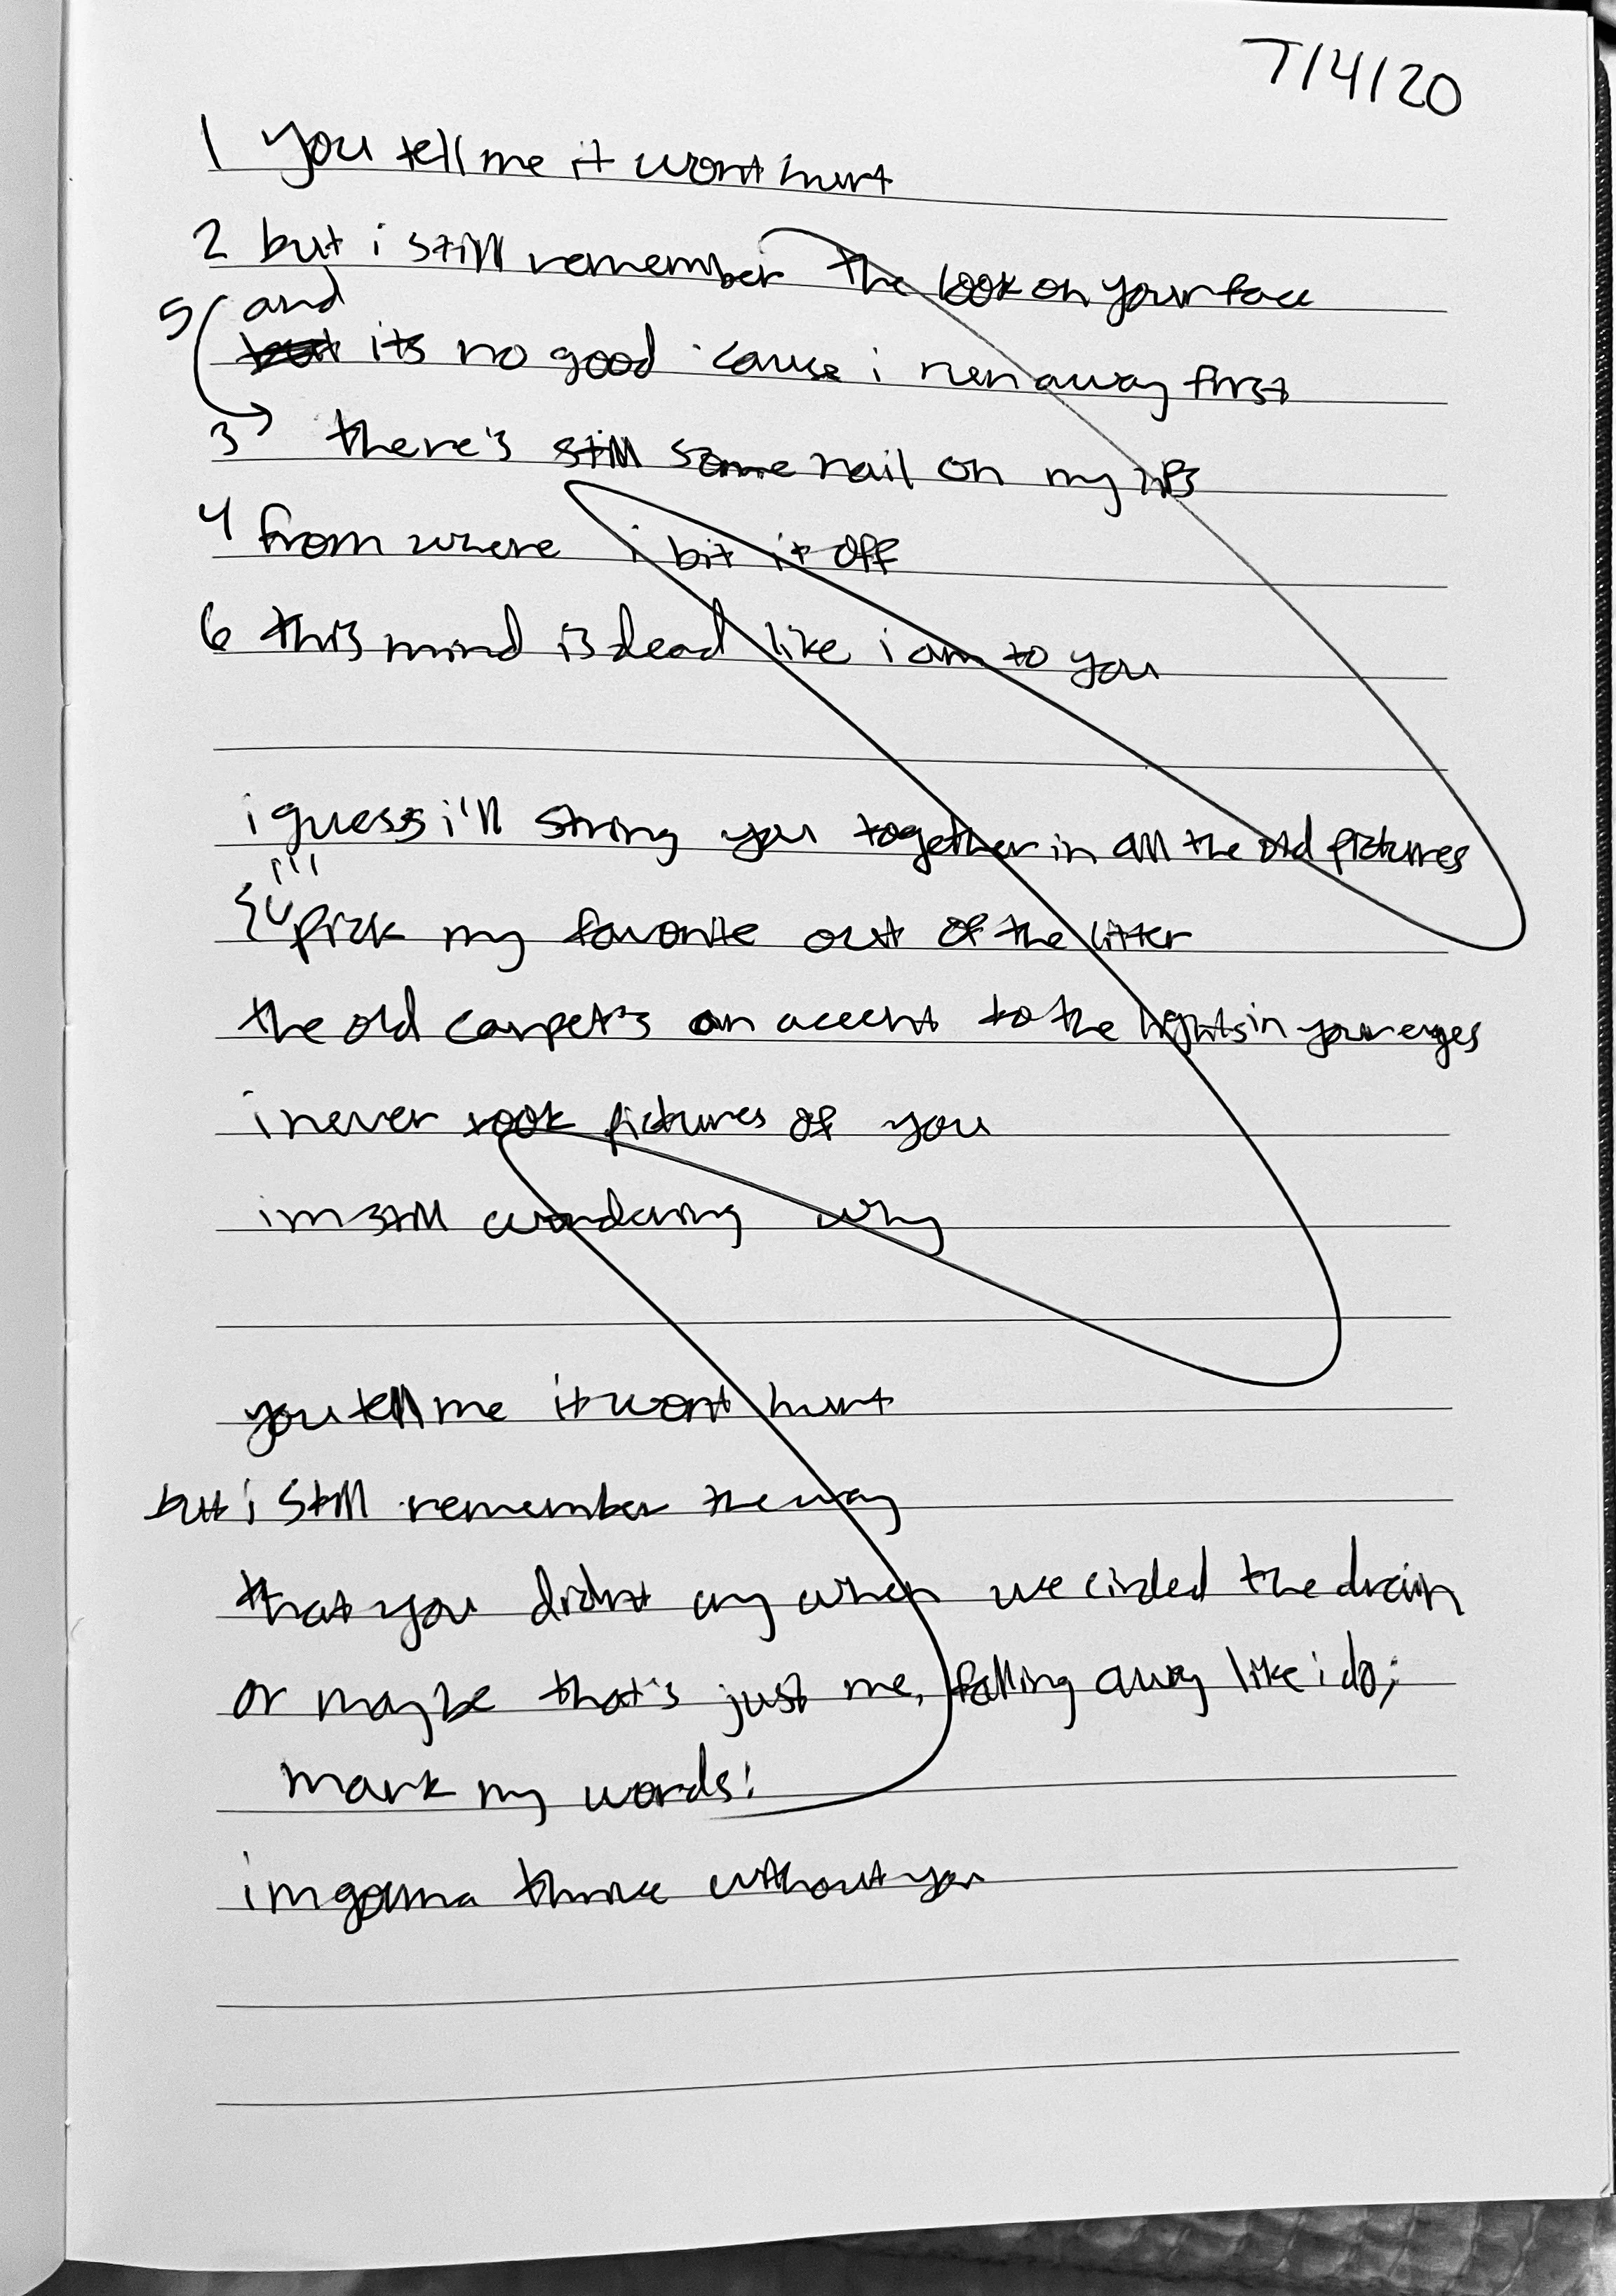 7/4/20
1 you tell me it wont hurt
2 but i still remember the look on your face
5 and
but its no good 'cause i run away first
3 there's still some nail on my lips
4 from where i bit it off
6 this mind is dead like i am to you
i guess i'll string you together in all the old pictures
i'll
pick my favorite out of the litter
the old carpet's an accent to the lights in your eyes
i never took pictures of you
im still wondering why
you tell me it wont hurt
but i still remember the way
that you didnt cry when we circled the drain
or maybe that's just me, falling away like i do;
mark my words:
im gonna thrive without you